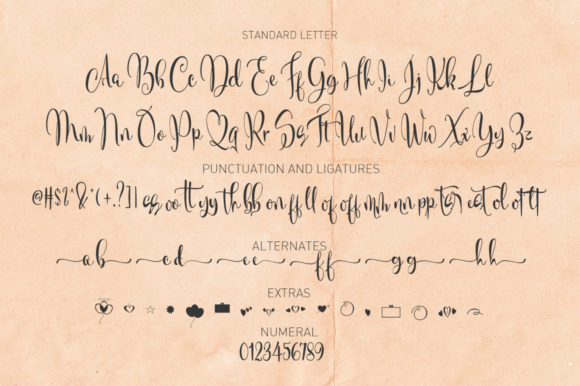 STANDARD LETTER
Aa Bb Cc Dd Ee Ff Gg Hh Ii Jj Kk Ll
Mm Nn Oo Pp Qq Rr Ss Tt Uu Vv Ww Xx Yy Zz
PUNCTUATION AND LIGATURES
@#$%^&*(+.?]| oo tt yy th bb on ff ll of off mm nn pp st ol ott tt
ALTERNATES
a b c d e e f f g g h h
EXTRAS
NUMERAL
0123456789